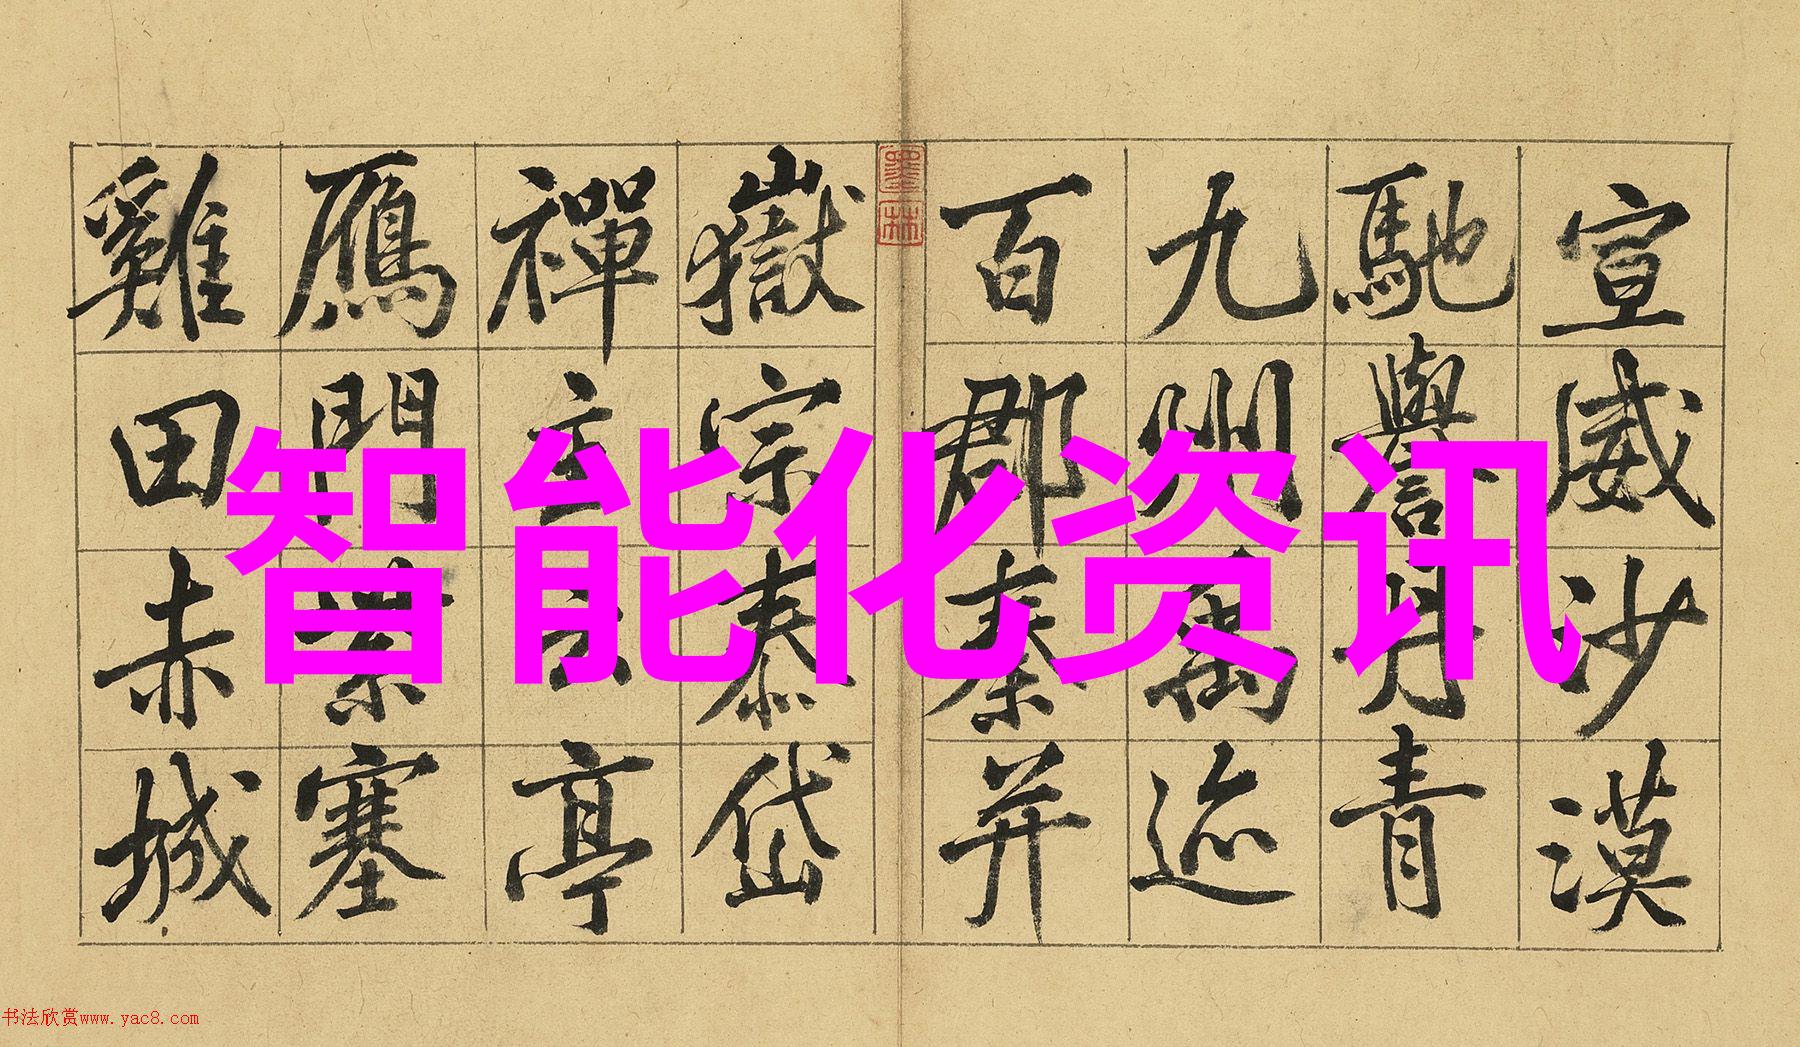 宣威沙漠
馳譽丹青
九州禹迹
百郡秦并
嶽宗泰岱
禪主云亭
鴈門紫塞
雞田赤城
墨林
智能化资讯
书法欣赏www.yac8.com